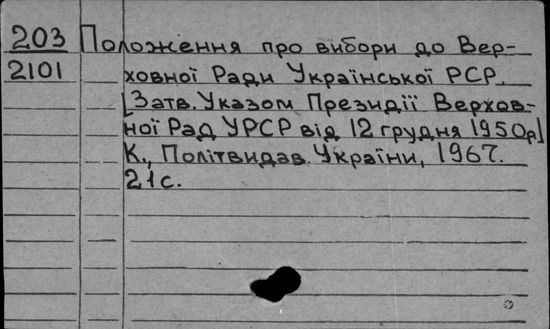 203 Положення про вибори до Вер-
2101 ховної Ради Української РСР.
[Затв. Указом Президії Верхов-
ної Рад УРСР від 12 грудня 1950р]
К., Політвидав України, 1967.
21с.